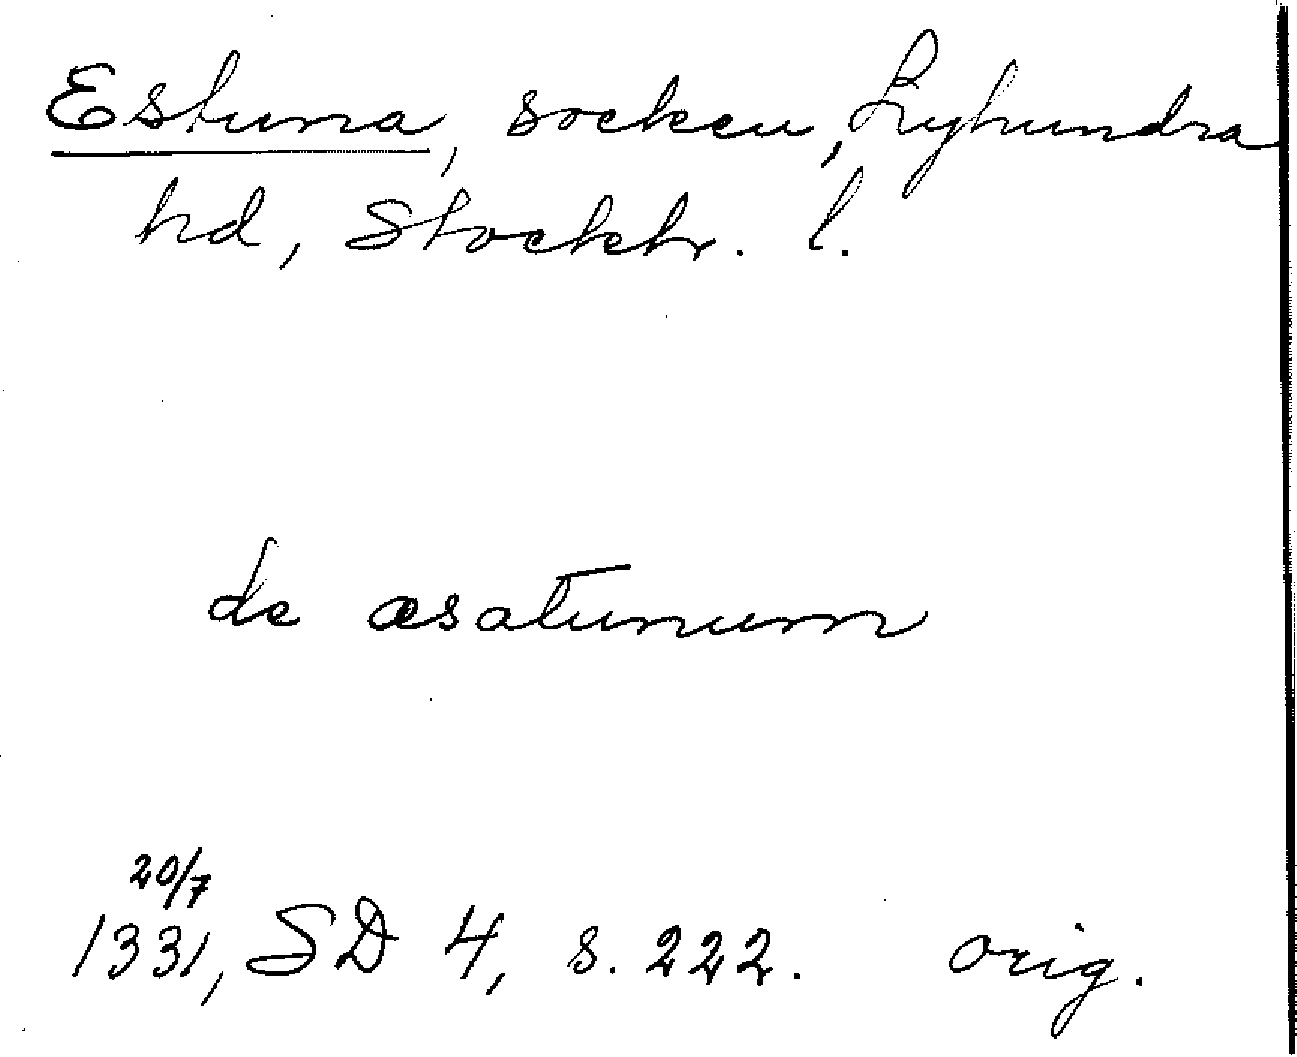 Estuna, socken, Lyhundra
hd, Stockh. l.
de æsatunum
20/7
1331, SD 4, s. 222. orig.